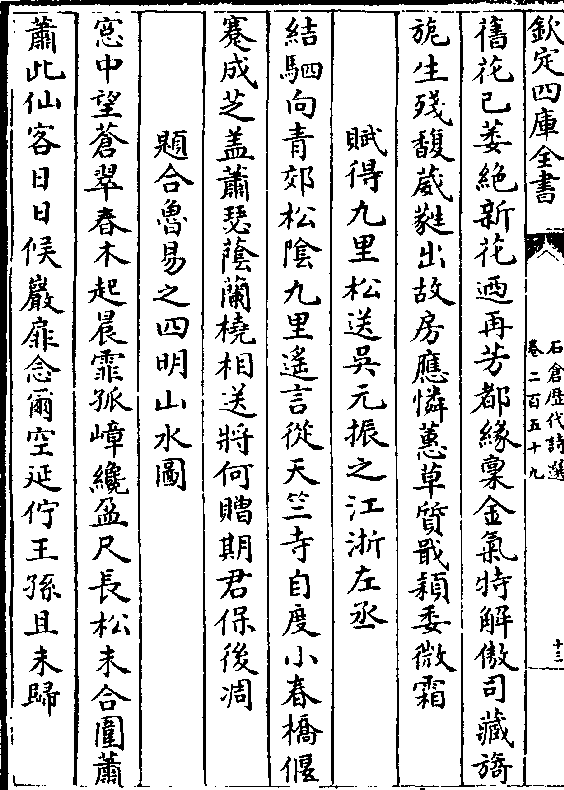 欽定四庫全書
石倉歴代詩選
卷二百五十九
十三
舊花已萎絶新花迺再芳都緣稟金氣特解傲司藏旖
旎生殘馥葳蕤出故房應憐蕙草質戢穎委微霜
賦得九里松送吳元振之江浙左丞
結駟向青郊松陰九里遙言從天竺寺自度小春橋偃
蹇成芝盖蕭瑟蔭蘭橈相送將何贈期君保後凋
題合魯易之四明山水圖
窓中望蒼翠春木起晨霏孤嶂纔盈尺長松未合圍蕭
蕭此仙客日日候巖扉念爾空延佇王孫且未歸